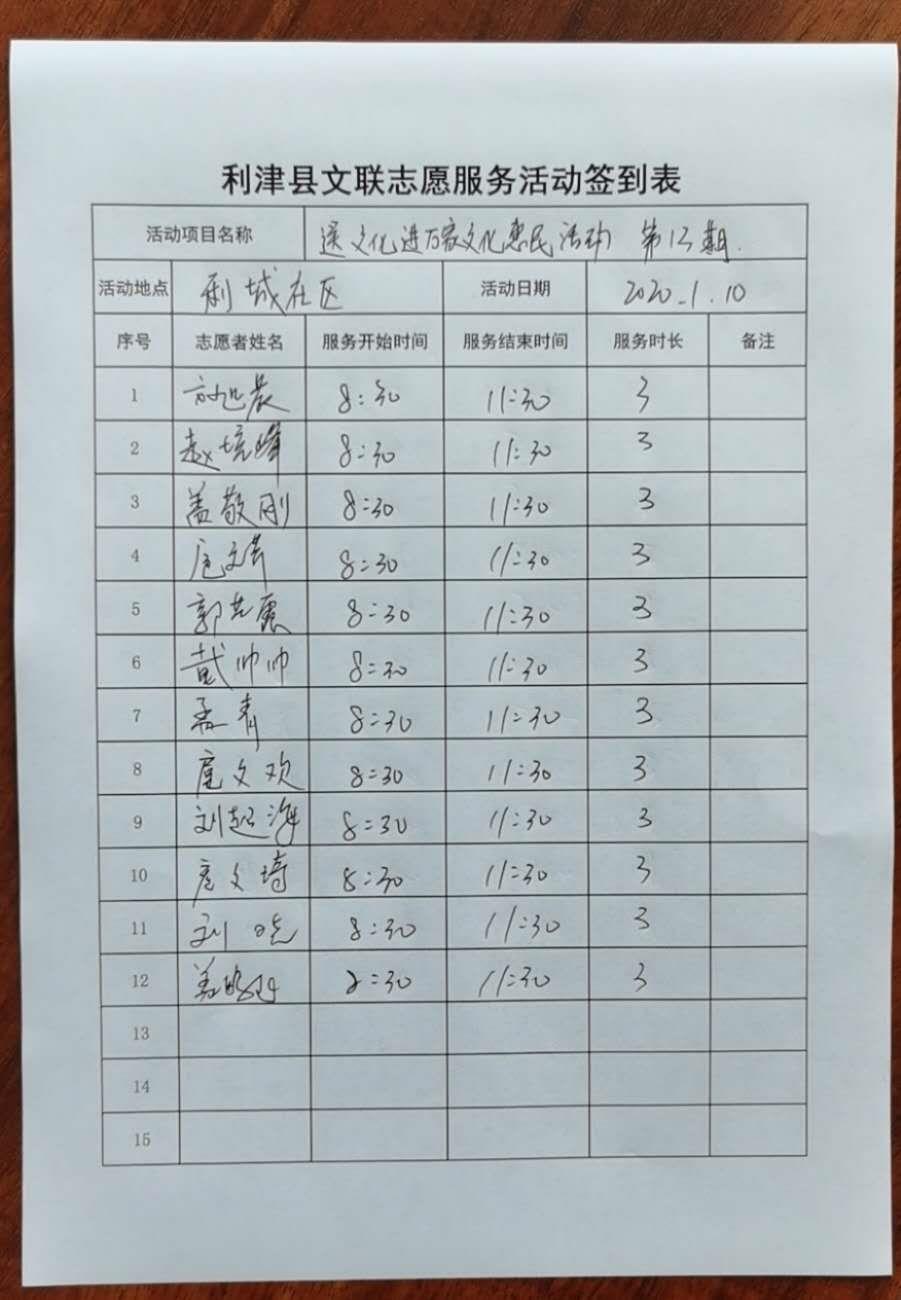 利津县文联志愿服务活动签到表
活动项目名称 送文化进万家文化惠民活动 第13期.
活动地点 利城社区 活动日期 2020.1.10
序号 志愿者姓名 服务开始时间 服务结束时间 服务时长 备注
1 8:30 11:30 3
2 赵境峰 8:30 11:30 3
3 盖敬刚 8:30 11:30 3
4 8:30 11:30 3
5 8:30 11:30 3
6 戴帅帅 8:30 11:30 3
7 孟青 8:30 11:30 3
8 扈文欢 8:30 11:30 3
9 刘超海 8:30 11:30 3
10 扈文琦 8:30 11:30 3
11 刘晓 8:30 11:30 3
12 8:30 11:30 3
13
14
15